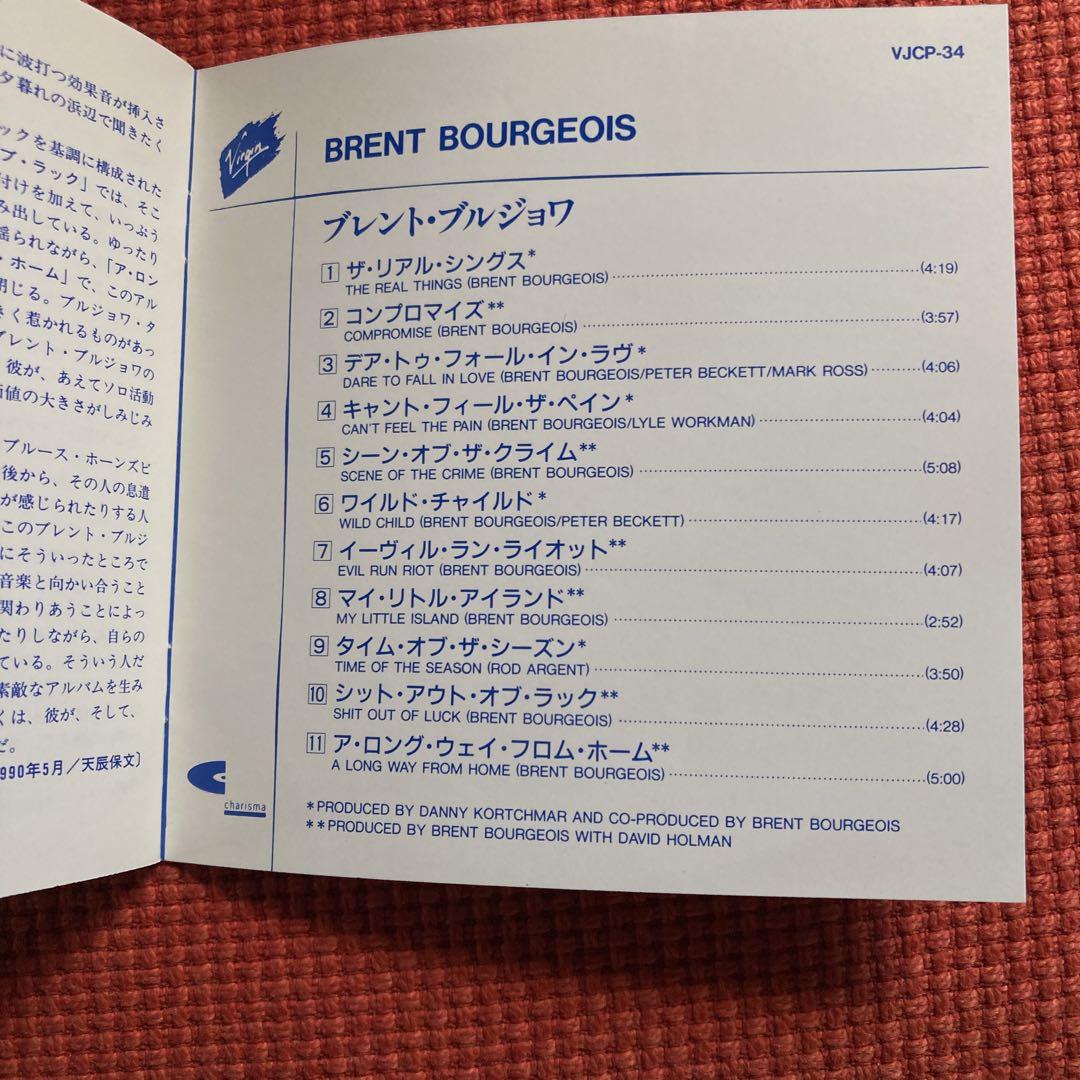 に波打つ効果音が挿入さ
夕暮れの浜辺で聞きたく
ックを基調に構成された
ブ・ラック」では、そこ
付けを加えて、いっぷう
み出している。ゆったり
揺られながら、「ア・ロン
・ホーム」で、このアル
閉じる。ブルジョワ・タ
きく惹かれるものがあっ
ブレント・ブルジョワの
彼が、あえてソロ活動
価値の大きさがしみじみ
ブルース・ホーンズビ
後から、その人の息遣
が感じられたりする人
このブレント・ブルジ
にそういったところで
音楽と向かい合うこと
関わりあうことによっ
たりしながら、自らの
ている。そういう人だ
素敵なアルバムを生み
くは、彼が、そして、
だ。
990年5月/天辰保文〕
VJCP-34
Virgin
BRENT BOURGEOIS
ブレント・ブルジョワ
1 ザ・リアル・シングス*
THE REAL THINGS (BRENT BOURGEOIS) (4:19)
2 コンプロマイズ**
COMPROMISE (BRENT BOURGEOIS) (3:57)
3 デア・トゥ・フォール・イン・ラヴ*
DARE TO FALL IN LOVE (BRENT BOURGEOIS/PETER BECKETT/MARK ROSS) (4:06)
4 キャント・フィール・ザ・ペイン*
CAN'T FEEL THE PAIN (BRENT BOURGEOIS/LYLE WORKMAN) (4:04)
5 シーン・オブ・ザ・クライム**
SCENE OF THE CRIME (BRENT BOURGEOIS) (5:08)
6 ワイルド・チャイルド*
WILD CHILD (BRENT BOURGEOIS/PETER BECKETT) (4:17)
7 イーヴィル・ラン・ライオット**
EVIL RUN RIOT (BRENT BOURGEOIS) (4:07)
8 マイ・リトル・アイランド**
MY LITTLE ISLAND (BRENT BOURGEOIS) (2:52)
9 タイム・オブ・ザ・シーズン*
TIME OF THE SEASON (ROD ARGENT) (3:50)
10 シット・アウト・オブ・ラック**
SHIT OUT OF LUCK (BRENT BOURGEOIS) (4:28)
11 ア・ロング・ウェイ・フロム・ホーム**
A LONG WAY FROM HOME (BRENT BOURGEOIS) (5:00)
charisma
*PRODUCED BY DANNY KORTCHMAR AND CO-PRODUCED BY BRENT BOURGEOIS
**PRODUCED BY BRENT BOURGEOIS WITH DAVID HOLMAN